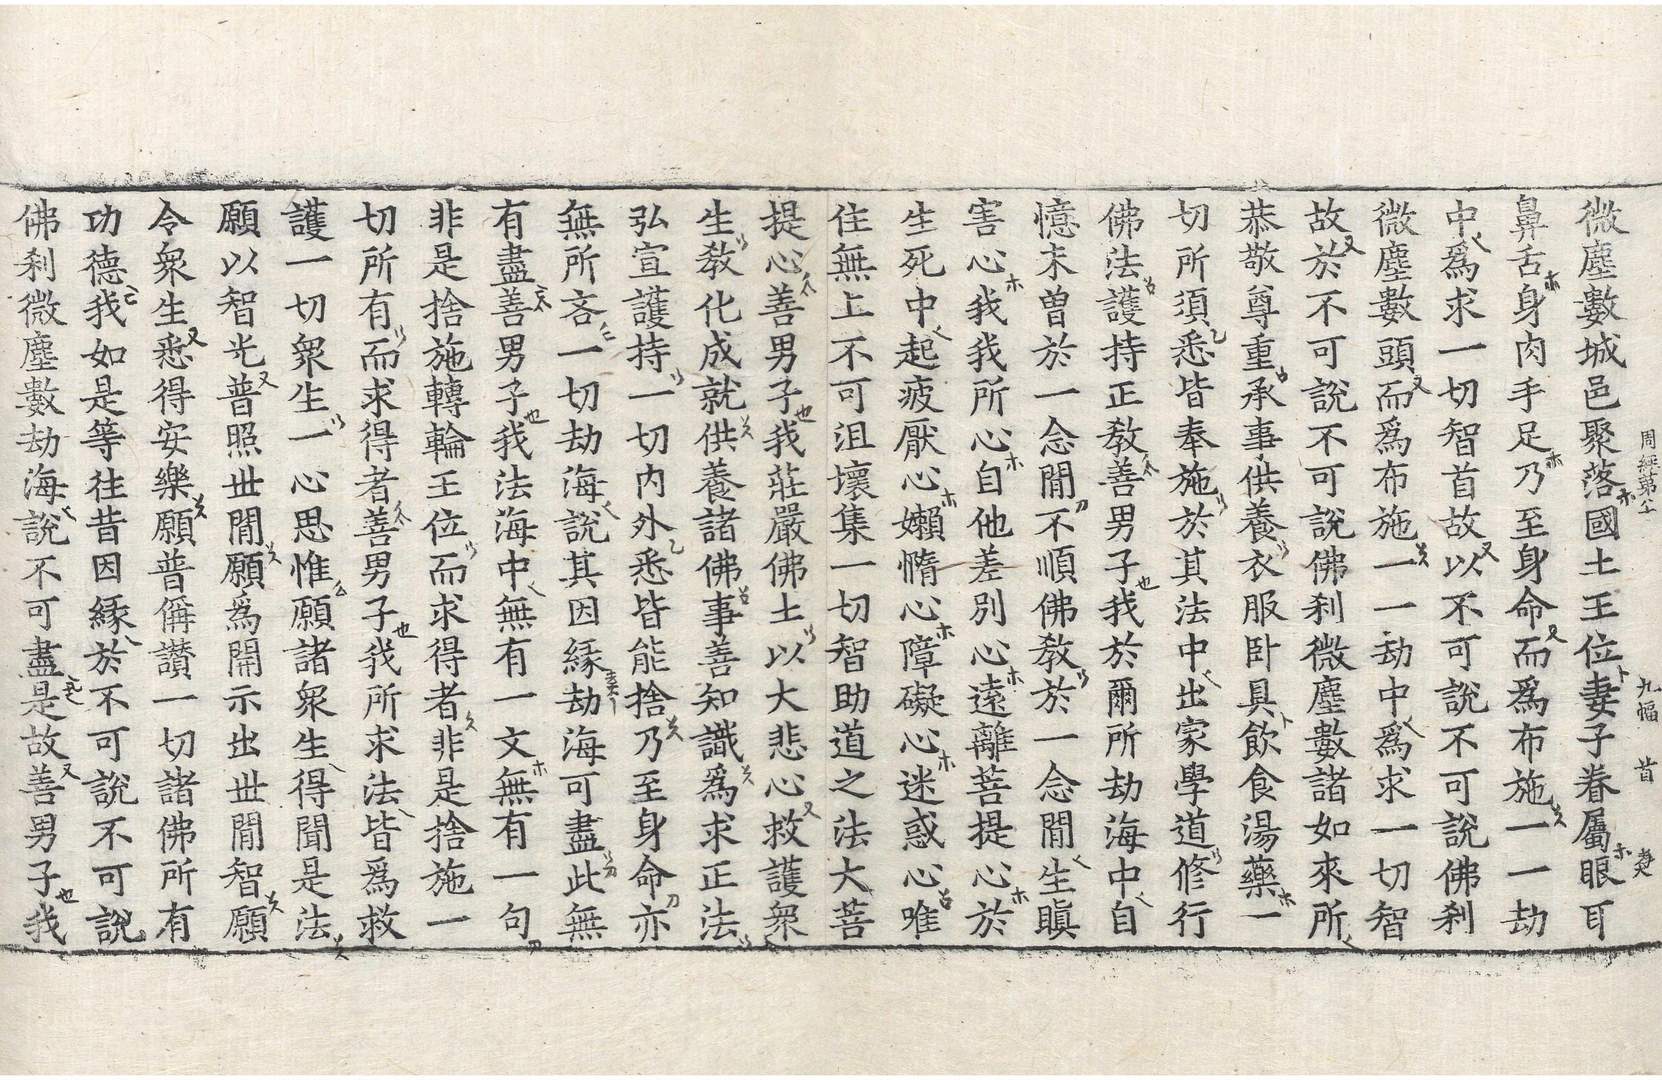 周經第六 九幅 首
微塵數城邑聚落國土王位妻子眷屬眼耳
鼻舌身肉手足乃至身命而爲布施一一劫
中爲求一切智首故以不可說不可說佛刹
微塵數頭而爲布施一一劫中爲求一切智
故於不可說不可說佛刹微塵數諸如來所
恭敬尊重承事供養衣服卧具飲食湯藥一
切所須悉皆奉施於其法中出家學道修行
佛法護持正教善男子我於爾所劫海中自
憶未曾於一念閒不順佛教於一念閒生瞋
害心我我所心自他差別心遠離菩提心於
生死中起疲厭心嬾惰心障礙心迷惑心唯
住無上不可沮壞集一切智助道之法大菩
提心善男子我莊嚴佛土以大悲心救護衆
生教化成就供養諸佛事善知識爲求正法
弘宣護持一切內外悉皆能捨乃至身命亦
無所吝一切劫海說其因緣劫海可盡此無
有盡善男子我法海中無有一文無有一句
非是捨施轉輪王位而求得者非是捨施一
切所有而求得者善男子我所求法皆爲救
護一切衆生一心思惟願諸衆生得聞是法
願以智光普照世閒願爲開示出世閒智願
令衆生悉得安樂願普稱讚一切諸佛所有
功德我如是等往昔因緣於不可說不可說
佛刹微塵數劫海說不可盡是故善男子我